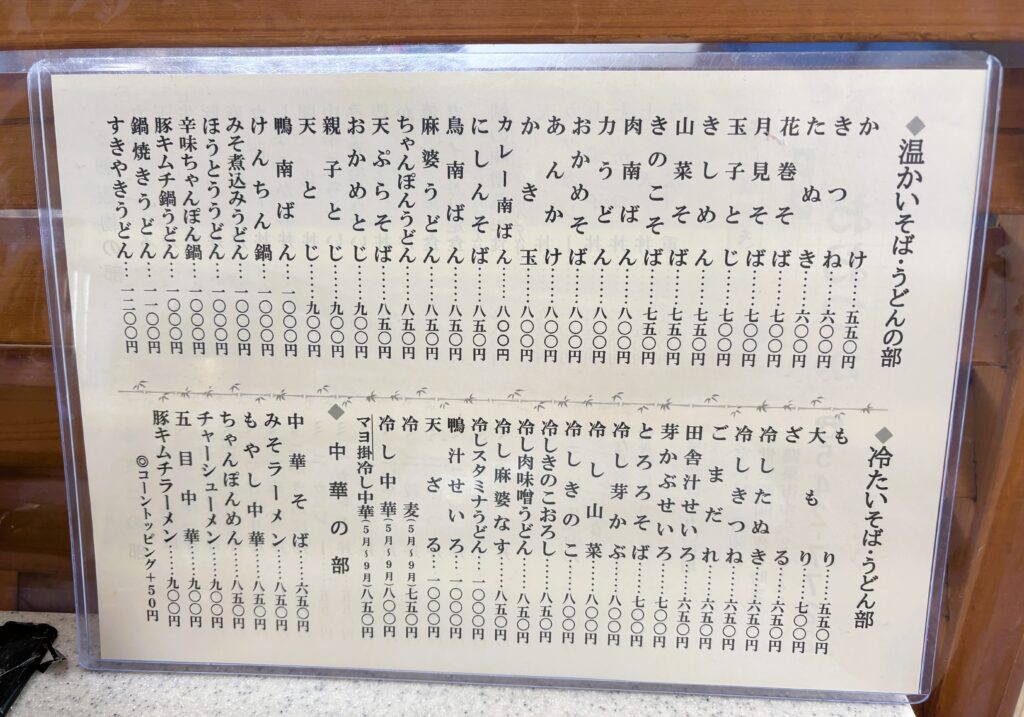 ◆温かいそば・うどんの部
かけ……五五〇円
きつね……六〇〇円
たぬき……六〇〇円
花巻そば……七〇〇円
月見そば……七〇〇円
玉子とじ……七〇〇円
きしめん……七五〇円
山菜そば……七五〇円
きのこそば……七五〇円
肉南ばん……八〇〇円
力うどん……八〇〇円
おかめそば……八〇〇円
あんかけ……八〇〇円
かき玉……八〇〇円
カレー南ばん……八〇〇円
にしんそば……八五〇円
鳥南ばん……八五〇円
麻婆うどん……八五〇円
ちゃんぽんうどん……八五〇円
天ぷらそば……八五〇円
おかめとじ……九〇〇円
親子とじ……九〇〇円
天とじ……九〇〇円
鴨南ばん……一〇〇〇円
けんちん鍋……一〇〇〇円
みそ煮込みうどん……一〇〇〇円
ほうとううどん……一〇〇〇円
辛味ちゃんぽん鍋……一〇〇〇円
豚キムチ鍋うどん……一〇〇〇円
鍋焼きうどん……一一〇〇円
すきやきうどん……一二〇〇円
◆冷たいそば・うどん部
もり……五五〇円
大もり……七〇〇円
ざる……六五〇円
冷したぬき……六五〇円
冷しきつね……六五〇円
ごまだれ……六五〇円
田舎汁せいろ……六五〇円
芽かぶせいろ……七〇〇円
とろろそば……七〇〇円
冷し芽かぶ……八〇〇円
冷し山菜……八〇〇円
冷しきのこ……八〇〇円
冷しきのこおろし……八五〇円
冷し肉味噌うどん……八五〇円
冷し麻婆なす……八五〇円
冷しスタミナうどん……一〇〇〇円
鴨汁せいろ……一〇〇〇円
天ざる……一〇〇〇円
冷麦(5月〜9月)七五〇円
冷し中華(5月〜9月)八五〇円
マヨ掛冷し中華(5月〜9月)八五〇円
◆中華の部
中華そば……六五〇円
みそラーメン……八五〇円
もやし中華……八五〇円
ちゃんぽんめん……八五〇円
チャーシューメン……九〇〇円
五目中華……九〇〇円
豚キムチラーメン……九〇〇円
◎コーントッピング+50円